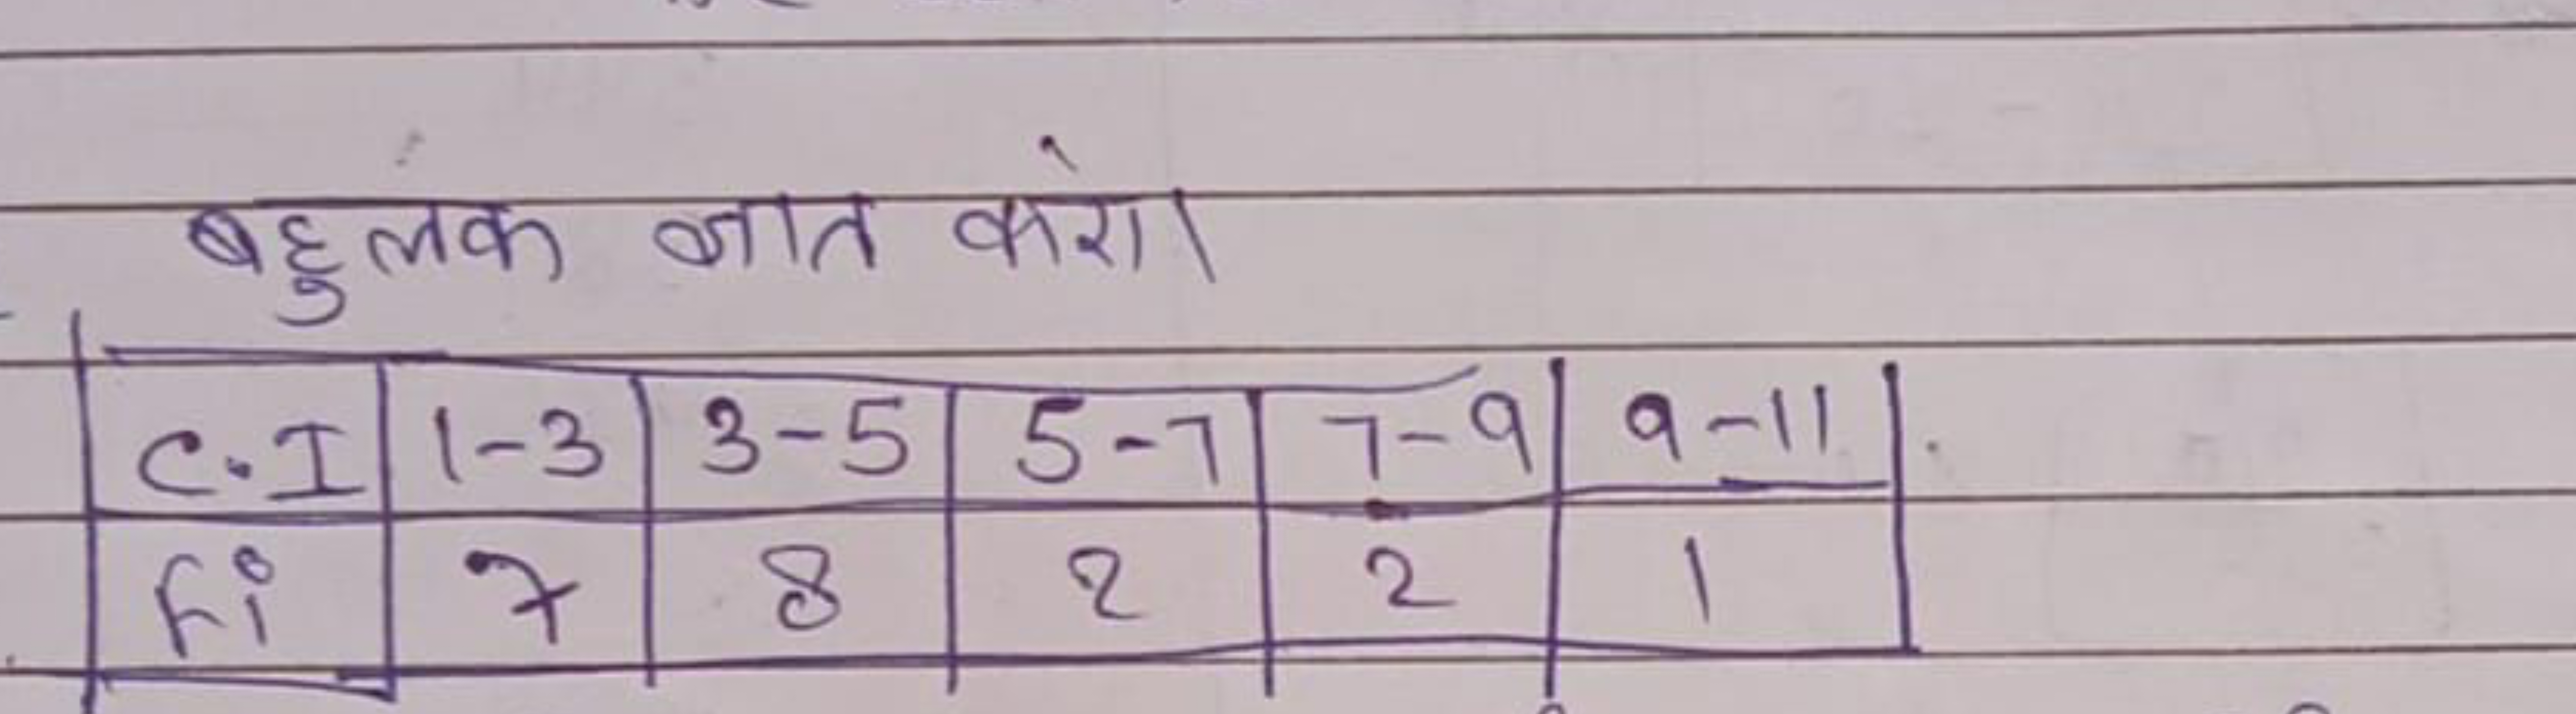 बहुलक ज्ञात करो।
C.I 1-3 3-5 5-7 7-9 9-11
fi 7 8 2 2 1